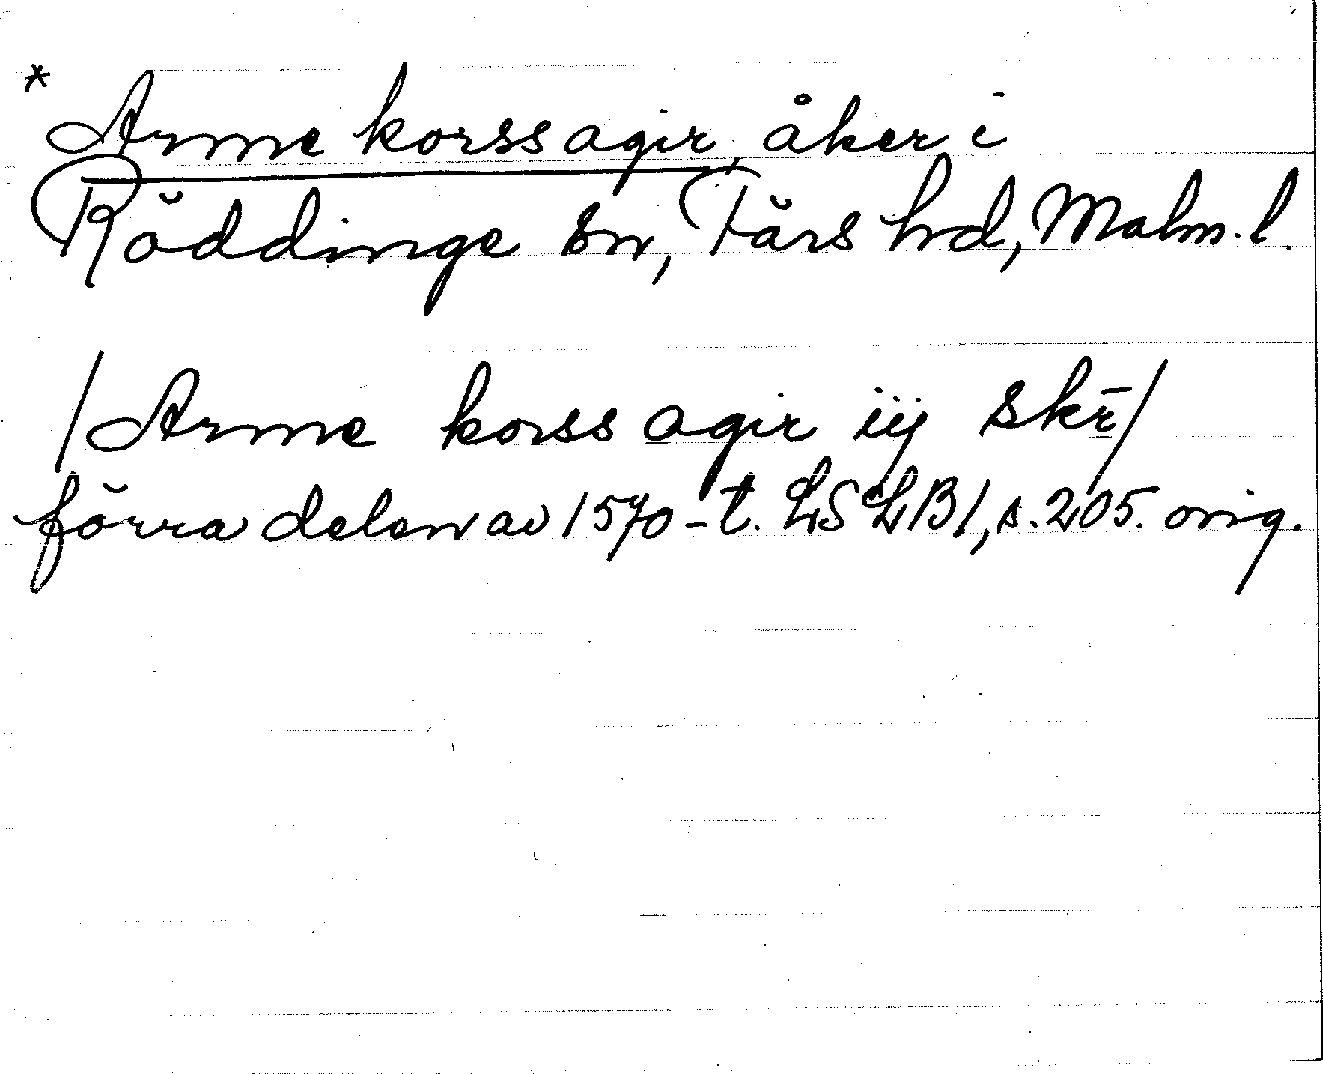 * Arme korssagir, åker i
Röddinge sn, Färs hd, Malm. l.
/Arme korss agir iij skr̄/
förra delen av 1570-t. LSLB1, s. 205. orig.